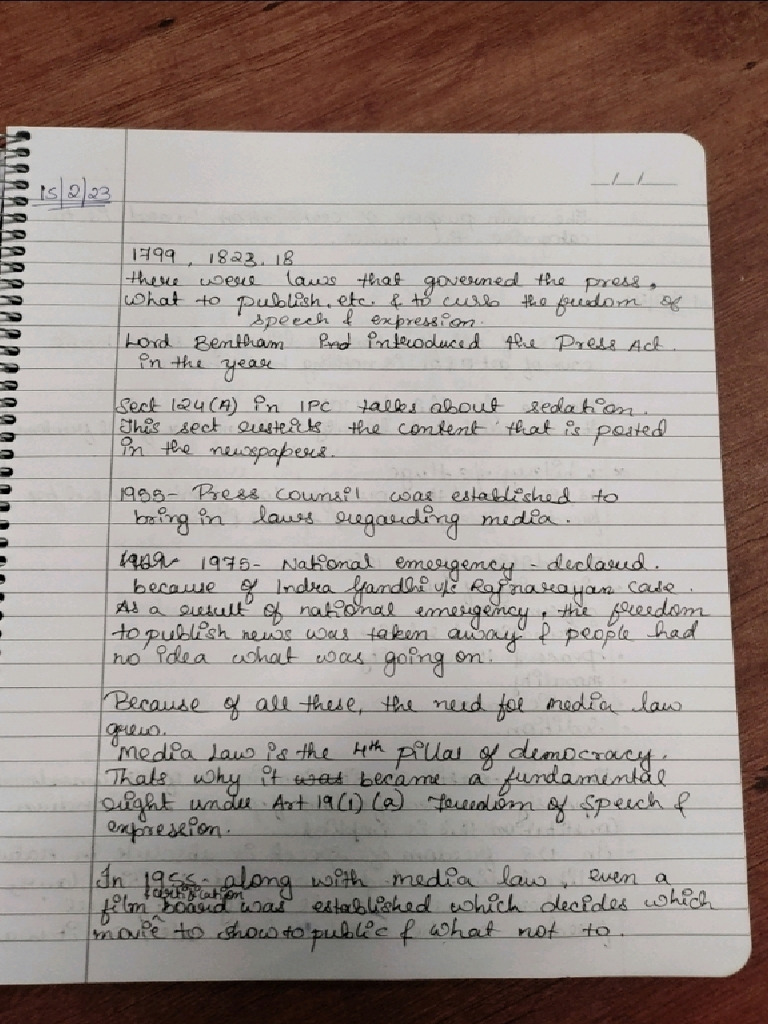 15/2/23
_/_/_
1799, 1823, 18
there were laws that governed the press,
what to publish, etc. & to curb the freedom of
speech & expression.
Lord Bentham introduced the Press Act
in the year
Sect 124(A) in IPC talks about sedation.
This sect restricts the content that is posted
in the newspapers.
1955- Press Counsil was established to
bring in laws regarding media.
1975- National emergency - declared.
because of Indra Gandhi v/s Rajnarayan case.
As a result of national emergency, the freedom
to publish news was taken away & people had
no idea what was going on.
Because of all these, the need for media law
grew.
Media Law is the 4th pillar of democracy.
Thats why it was became a fundamental
right under Art 19(1)(a) freedom of speech &
expression.
In 1955- along with media law, even a
certification
film board was established which decides which
movie to show to public & what not to.